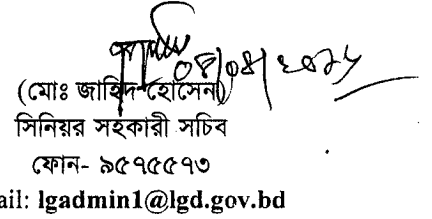 ০৪/০৪/২০১৮
(মোঃ জাহিদ হোসেন)
সিনিয়র সহকারী সচিব
ফোন- ৯৫৭৫৫৭৩
ail: lgadmin1@lgd.gov.bd